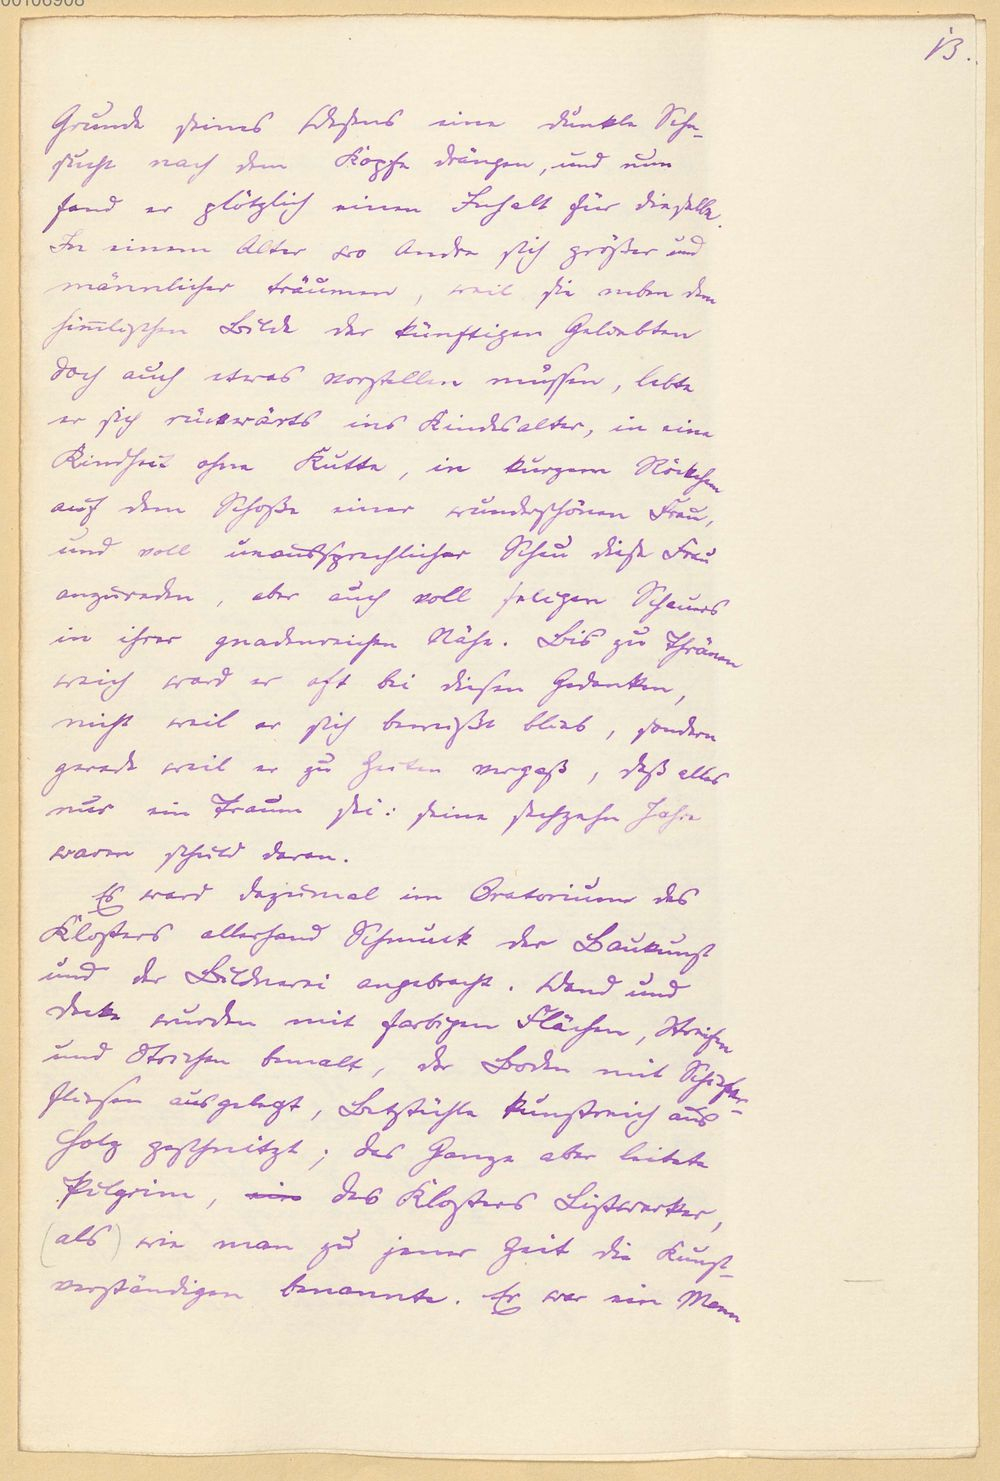 00106908
13.
Grunde seines Wesens eine dunkle Sehn-
sucht nach dem Kopfe drängen, und nun
fand er plötzlich einen Inhalt für dieselbe.
In einem Alter wo Andre sich größer und
männlicher träumen, weil sie neben dem
himlischen Bilde der künftigen Geliebten
doch auch etwas vorstellen müssen, lebte
er sich rückwärts ins Kindesalter, in eine
Kindheit ohne Kutte, in kurzem Röckchen
auf dem Schoße einer wunderschönen Frau,
und voll unaussprechlicher Scheu diese Frau
anzureden, aber auch voll seligen Schauers
in ihrer gnadenreichen Nähe. Bis zu Thränen
weich ward er oft bei diesen Gedanken,
nicht weil er sich bewußt blieb, sondern
gerade weil er zu Zeiten vergaß, daß alles
nur ein Traum sei: seine sechzehn Jahre
waren schuld daran.
Es ward dazumal im Oratorium des
Klosters allerhand Schmuck der Baukunst
und der Bildnerei angebracht. Wand und
Decke wurden mit farbigen Flächen, Streifen
und Strichen bemalt, der Boden mit
fliesen ausgelegt, Betstühle kunstreich aus
Holz geschnitzt; das Ganze aber leitete
Pilgrim, ein des Klosters Listwerker,
(als) wie man zu jener Zeit die Kunst-
verständigen benannte. Er war ein Mann